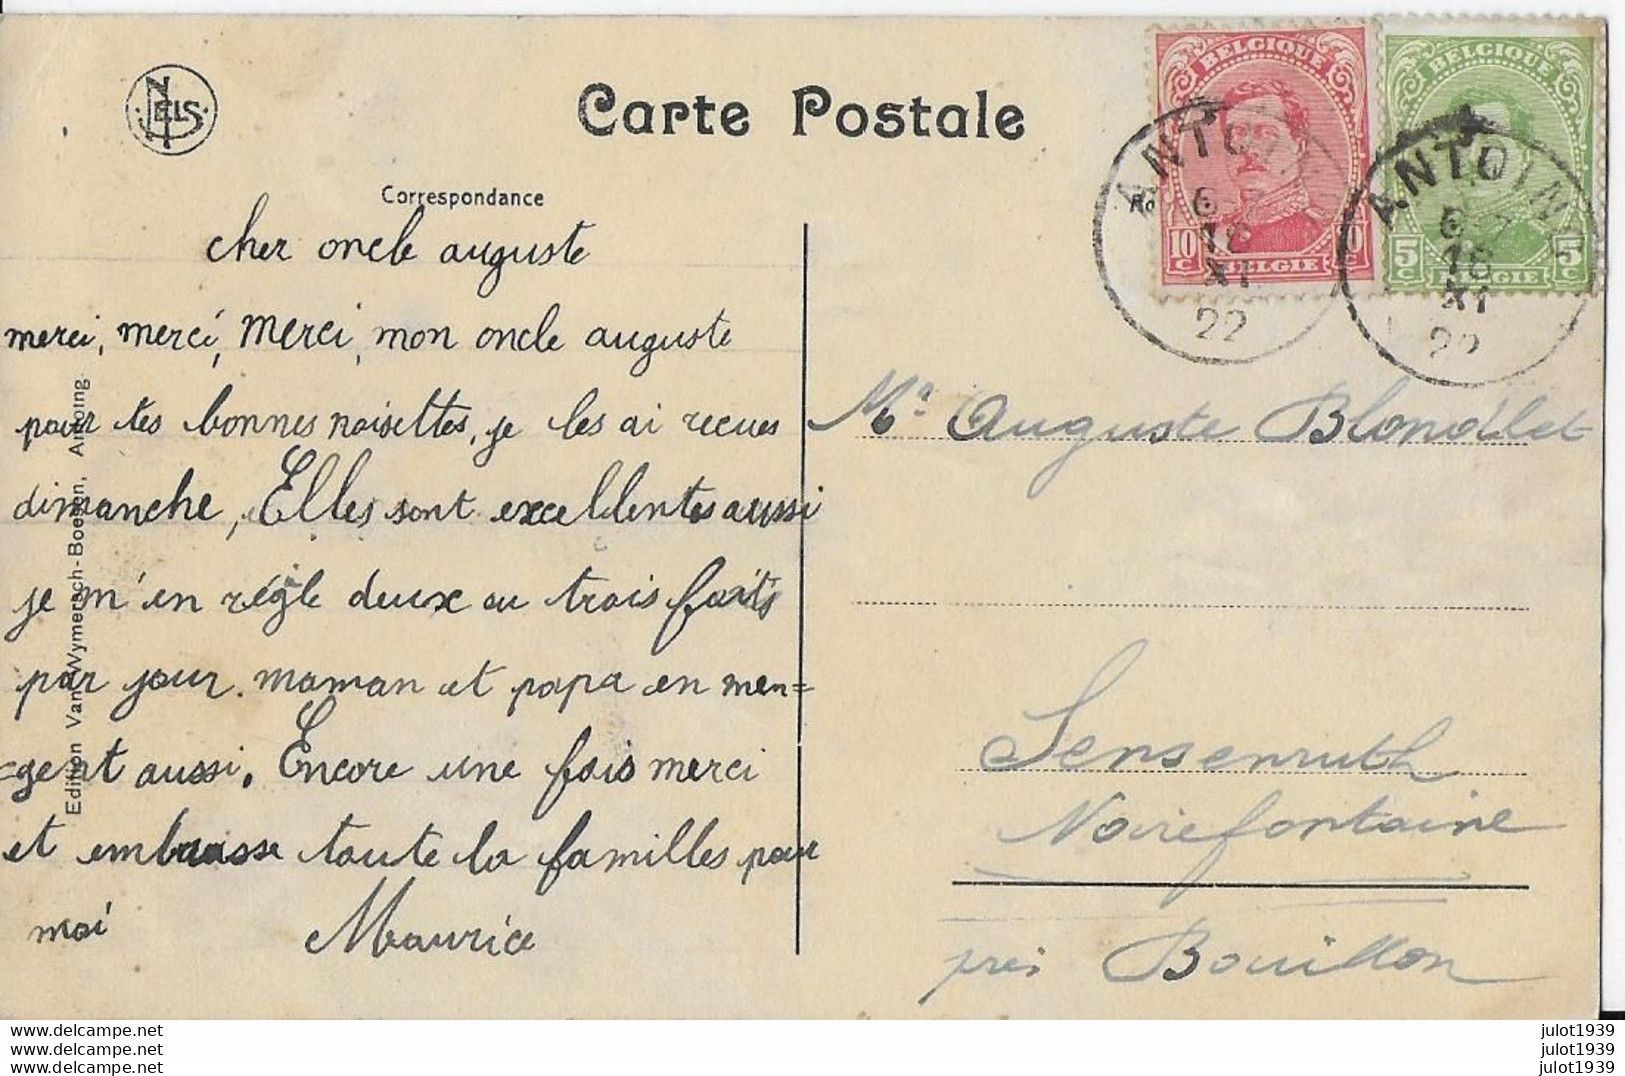 NELS
Carte Postale
Correspondance
BELGIQUE
10 C 10 C
BELGIE
BELGIQUE
5 C 5 C
BELGIE
ANTOIN
6-7
16
XI
22
ANTOING
6-7
16
XI
22
cher oncle auguste
merci, merci, merci, mon oncle auguste
pour tes bonnes noisettes, je les ai recues
dimanche, Elles sont excellentes aussi
je m'en régle deux ou trois faits
par jour. maman et papa en men=
=gent aussi. Encore une fois merci
et embrasse toute la familles pour
moi Maurice
Edition Van Wymersch-Boesen, Antoing.
Mr Auguste Blondelet
Sensenruth
Noirefontaine
près Bouillon
www.delcampe.net
www.delcampe.net
www.delcampe.net
julot1939
julot1939
julot1939